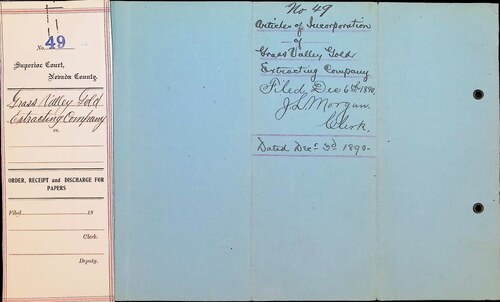 No. 49
Superior Court,
Nevada County.
Grass Valley Gold
Extracting Company
vs.
ORDER, RECEIPT and DISCHARGE FOR
PAPERS
Filed 19
Clerk.
Deputy.
No 49
Articles of Incorporation
of
Grass Valley Gold
Extracting Company
Filed Dec 6th 1890
J L Morgan
Clerk.
Dated Dec 3d 1890-